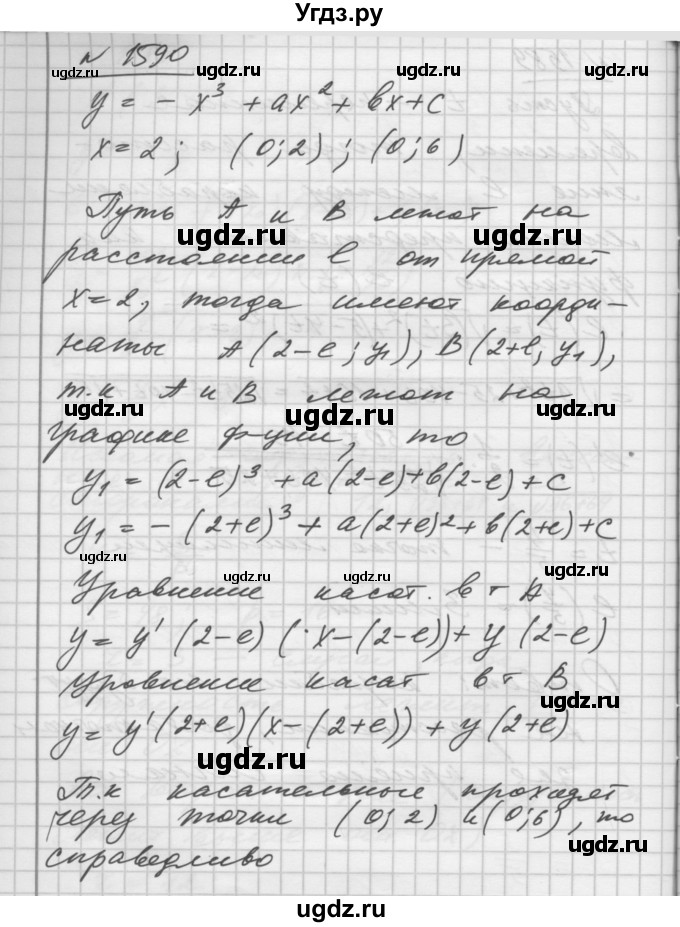 Угдз.ру
№ 1590
ugdz.ru ugdz.ru ugdz.ru
y = - x³ + ax² + bx + c
x = 2 ; (0; 2) ; (0; 6)
Путь A и B лежат на
ugdz.ru ugdz.ru
расстоянии l от прямой
x = 2, тогда имеют коорди-
ugdz.ru
наты A(2-l; y₁), B(2+l, y₁),
т.к A и B лежат на
ugdz.ru
графике ф-ции, то
y₁ = (2-l)³ + a(2-l)+b(2-l)+c
ugdz.ru
y₁ = - (2+l)³ + a(2+l)2+b(2+l)+c
ugdz.ru
Уравнение касат. в т A
ugdz.ru ugdz.ru
y = y' (2-l) ( x-(2-l))+ y (2-l)
ugdz.ru
уравнение касат в т B
ugdz.ru
y = y'(2+l)(x-(2+l)) + y(2+l)
ugdz.ru
Т.к касательные проходят
ugdz.ru ugdz.ru
через точки (0; 2) и (0; 6), то
ugdz.ru
справедливо
ugdz.ru